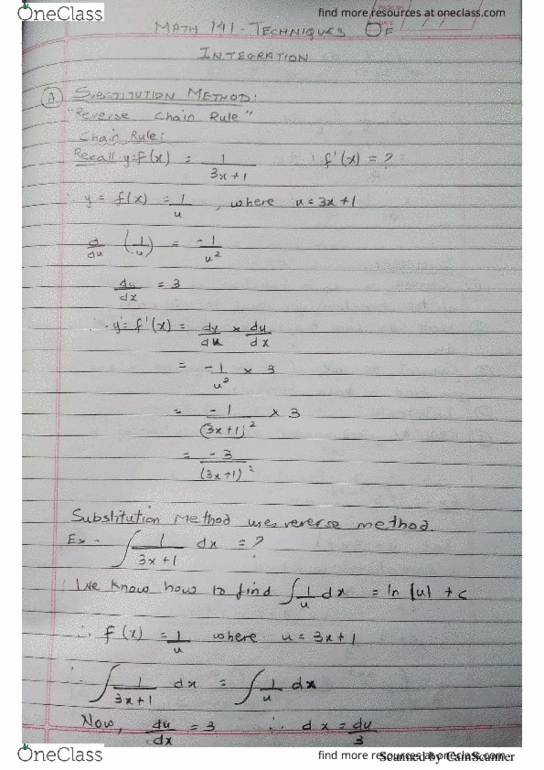 OneClass find more resources at oneclass.com
MATH 141 - TECHNIQUES OF
INTEGRATION
(A) SUBSTITUTION METHOD:
"Reverse Chain Rule"
Chain Rule:
Recall y=f(x) = 1/(3x+1) f'(x) = ?
∴ y = f(x) = 1/u , where u = 3x+1
d/du (1/u) = -1/u²
du/dx = 3
∴ y' = f'(x) = dy/du × du/dx
= -1/u² × 3
= -1/(3x+1)² × 3
= -3/(3x+1)²
Substitution Method uses reverse method.
Ex - ∫ 1/(3x+1) dx = ?
We know how to find ∫ 1/u dx = ln |u| + c
∴ f(x) = 1/u where u = 3x+1
∴ ∫ 1/(3x+1) dx = ∫ 1/u dx
Now, du/dx = 3 ∴ dx = du/3
OneClass find more resources at oneclass.com
Scanned by CamScanner